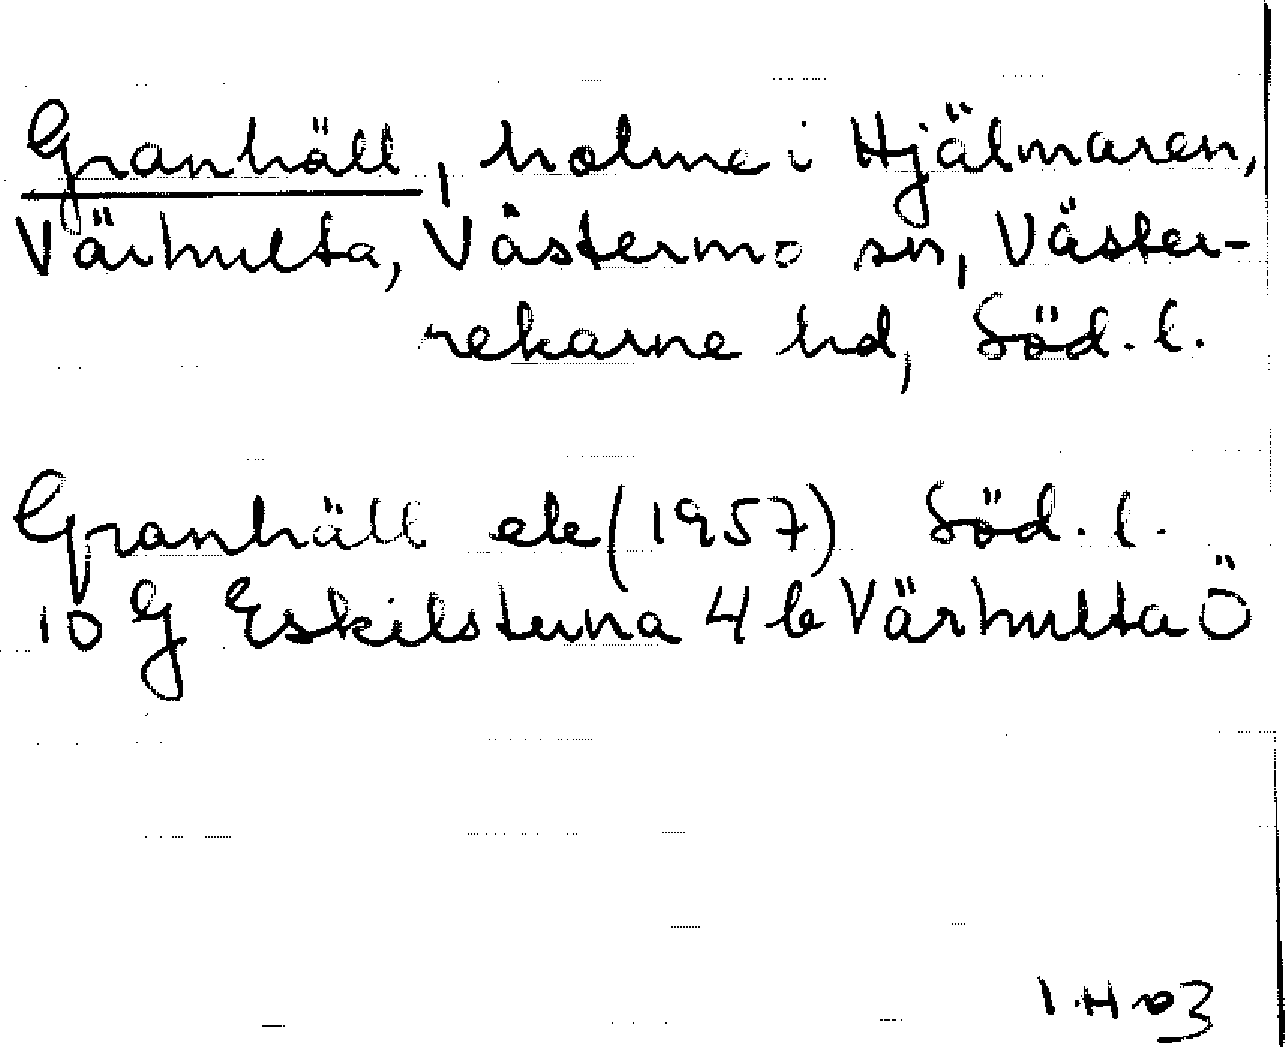 Granhäll, holme i Hjälmaren,
Värhulta, Västermo sn, Väster-
rekarne hd, Söd. l.
Granhäll ek (1957) Söd. l.
10 G Eskilstuna 4 b Värhulta Ö